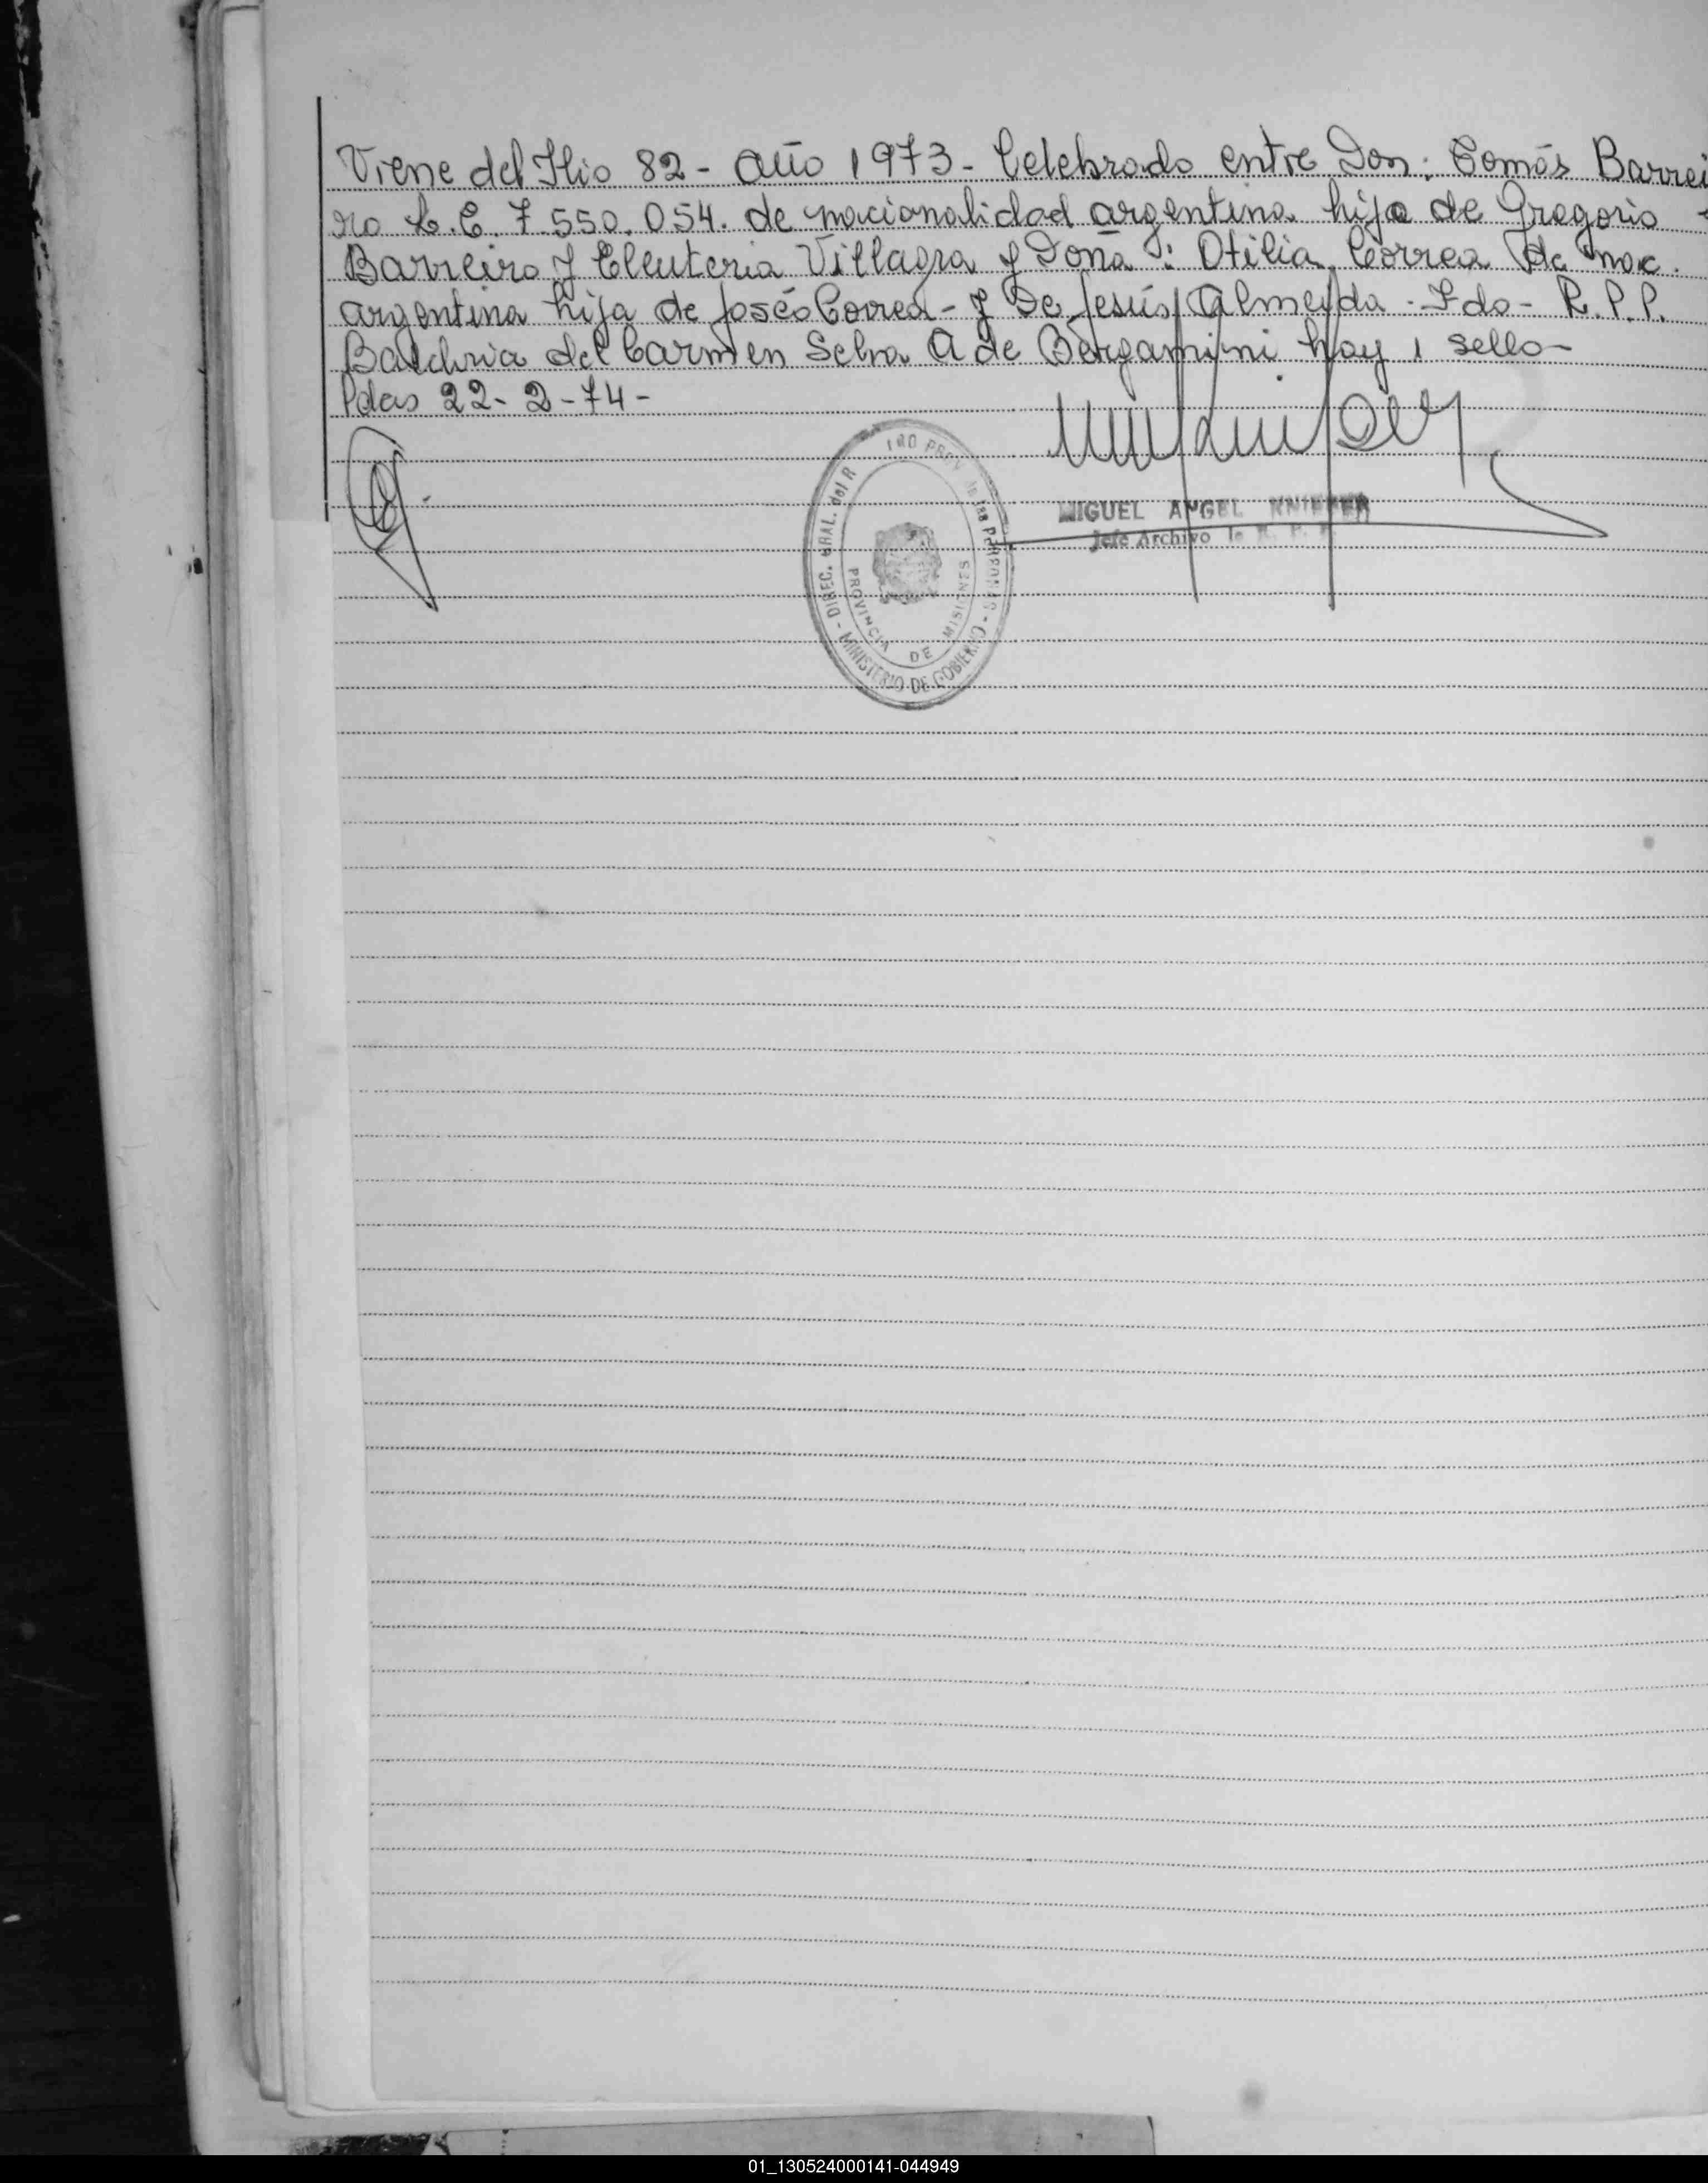 Viene del Flio 82 - Año 1973 - Celebrado entre Don: Tomás Barrei
ro L.E. 7.550.054. de nacionalidad argentina hijo de Gregorio
Barreiro y Eleuteria Villagra y Doña: Otilia Correa de nac.
argentina hija de José Correa - y De Jesús Almeyda - Fdo - R.P.P.
del Carmen Selva A de Bergamini hay 1 sello -
Pdas 22-2-74 -
DIREC. GRAL. del R PROV de las PERSONAS - MINISTERIO DE GOBIERNO -
PROVINCIA DE MISIONES
MIGUEL ANGEL
Jefe Archivo
01_130524000141-044949